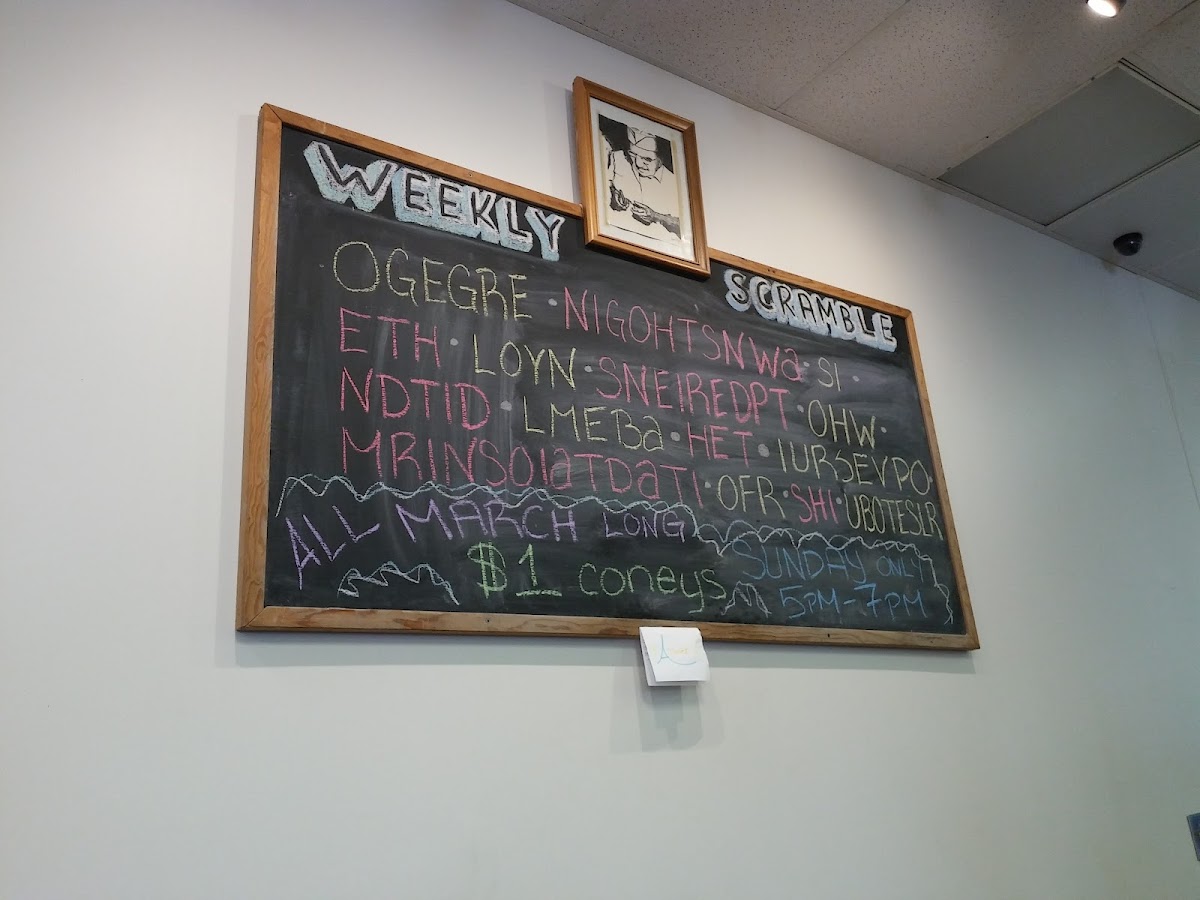 WEEKLY SCRAMBLE
OGEGRE · NIGOHTSNWa · SI ·
ETH · LOYN · SNEIREDPT · OHW ·
NDTID · LMEBa · HET · IURSEVPO ·
MRINSOIaTDaTI · OFR · SHI · UBOTESLR
ALL MARCH LONG
$1 coneys
SUNDAY ONLY
5PM-7PM